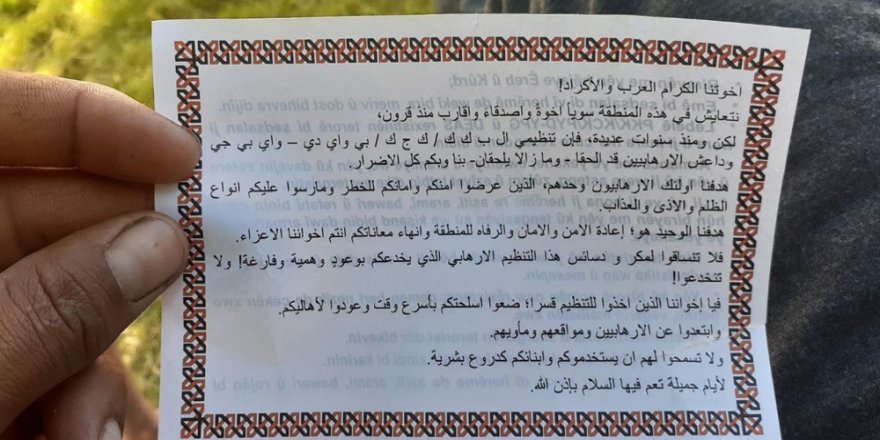 اخوتنا الكرام العرب والأكراد!
نتعايش في هذه المنطقة سوياً أخوةً وأصدقاءَ واقارب منذ قرون،
لكن ومنذ سنوات عديدة، فإن تنظيمي ال ب ك ك / ك ج ك / بي واي دي – واي بي جي
وداعش الارهابيين قد الحقا - وما زالا يلحقان- بنا وبكم كل الاضرار.
هدفنا اولئك الارهابيون وحدهم، الذين عرضوا امنكم وامانكم للخطر ومارسوا عليكم انواع
الظلم والأذى والعذاب.
هدفنا الوحيد هو؛ إعادة الامن والامان والرفاه للمنطقة وانهاء معاناتكم انتم اخواننا الاعزاء.
فلا تنساقوا لمكر و دسائس هذا التنظيم الارهابي الذي يخدعكم بوعودٍ وهمية وفارغة! ولا
تنخدعوا!
فيا إخواننا الذين اخذوا للتنظيم قسرا؛ ضعوا اسلحتكم بأسرع وقت وعودوا لأهاليكم.
وابتعدوا عن الارهابيين ومواقعهم ومأويهم.
ولا تسمحوا لهم ان يستخدموكم وابنائكم كدروع بشرية.
لأيام جميلة تعم فيها السلام بإذن الله.